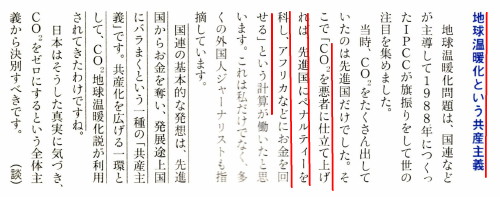 地球温暖化という共産主義
地球温暖化問題は、国連など
が主導して1988年につくっ
たIPCCが旗振りをして世の
注目を集めました。
当時、CO₂をたくさん出して
いたのは先進国だけでした。そ
こで「CO₂を悪者に仕立て上げ
れば、先進国にペナルティーを
科し、アフリカなどにお金を回
せる」という計算が働いたと思
います。これは私だけでなく、多
くの外国人ジャーナリストも指
摘しています。
国連の基本的な発想は、先進
国からお金を奪い、発展途上国
にバラまくという一種の「共産主
義」です。共産化を広げる一環と
して、CO₂地球温暖化説が利用
されてきたわけですね。
日本はそうした真実に気づき、
CO₂をゼロにするという全体主
義から決別すべきです。（談）